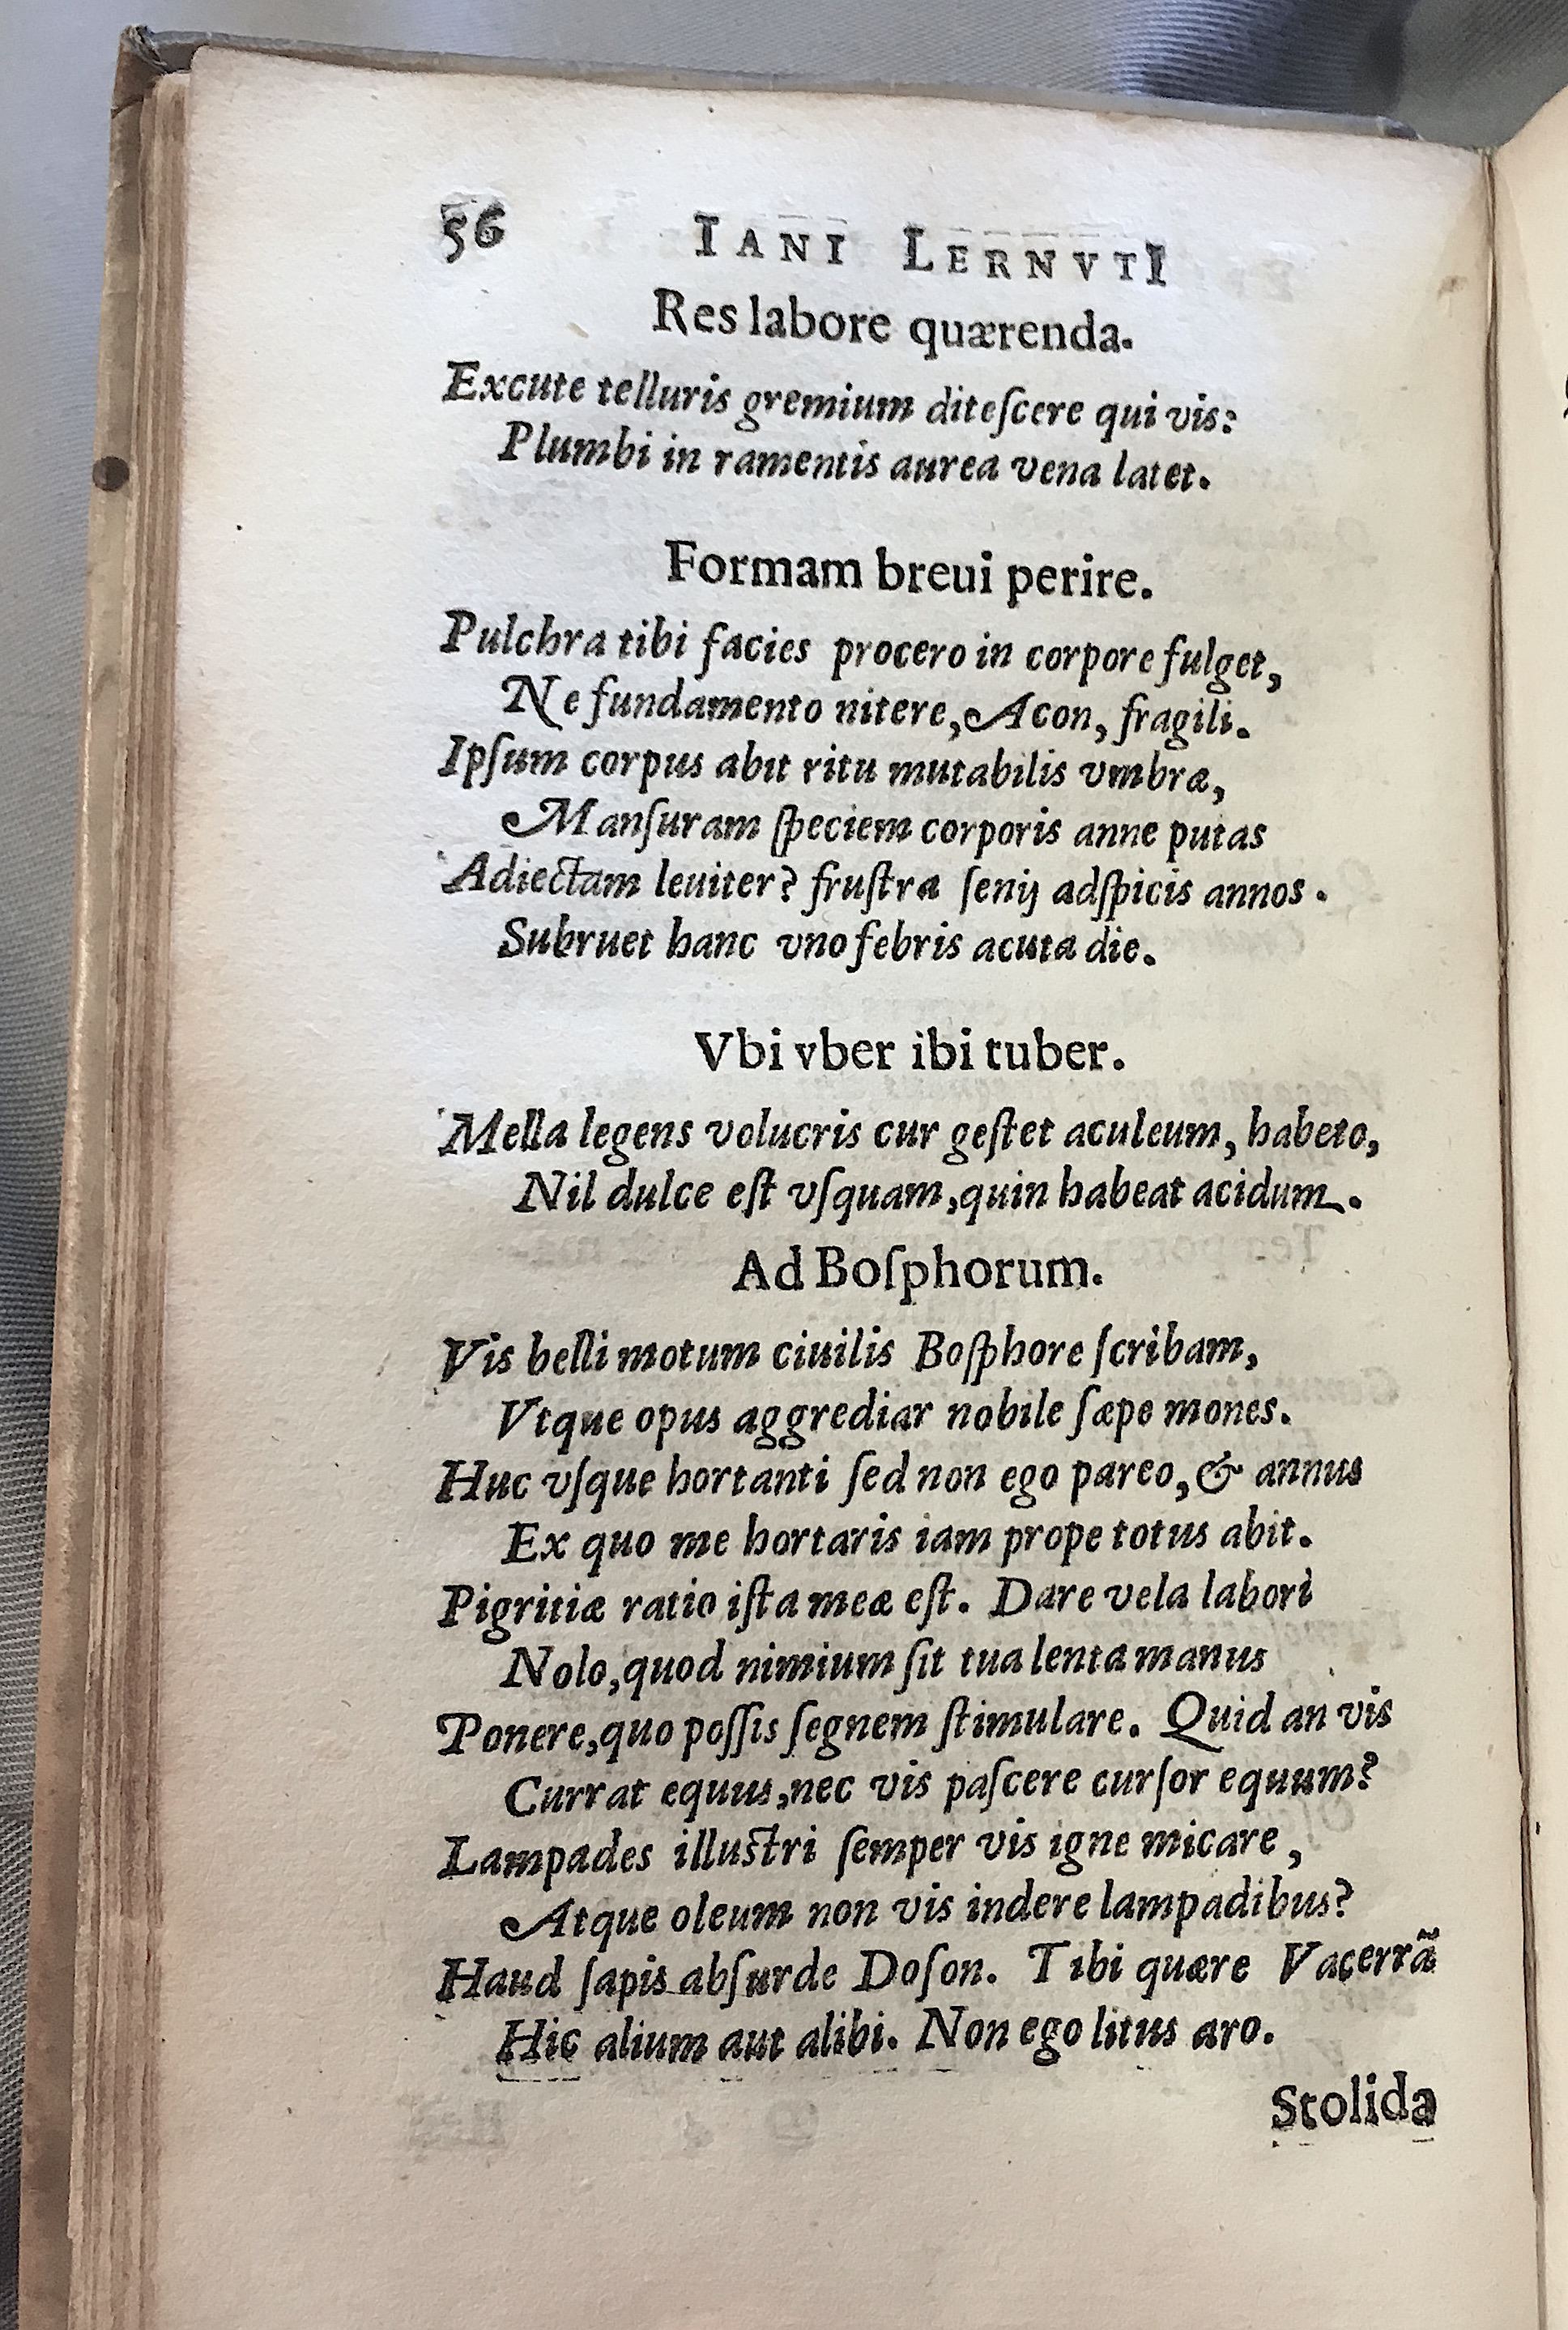 56 IANI LERNVTI
Res labore quærenda.
Excute telluris gremium diteſcere qui vis:
Plumbi in ramentis aurea vena latet.
Formam breui perire.
Pulchra tibi facies procero in corpore fulget,
Ne fundamento nitere, Acon, fragili.
Ipſum corpus abit ritu mutabilis vmbræ,
Manſuram ſpeciem corporis anne putas
Adiectam leuiter? fruſtra ſenij adſpicis annos.
Subruet hanc vno febris acuta die.
Vbi vber ibi tuber.
Mella legens volucris cur geſtet aculeum, habeto,
Nil dulce eſt vſquam, quin habeat acidum.
Ad Boſphorum.
Vis belli motum ciuilis Boſphore ſcribam,
Vtque opus aggrediar nobile ſæpe mones.
Huc vſque hortanti ſed non ego pareo, & annus
Ex quo me hortaris iam prope totus abit.
Pigritiæ ratio iſta meæ eſt. Dare vela labori
Nolo, quod nimium ſit tua lenta manus
Ponere, quo poſſis ſegnem ſtimulare. Quid an vis
Currat equus, nec vis paſcere curſor equum?
Lampades illuſtri ſemper vis igne micare,
Atque oleum non vis indere lampadibus?
Haud ſapis abſurde Doſon. Tibi quære Vacerrã
Hic alium aut alibi. Non ego litus aro.
Stolida